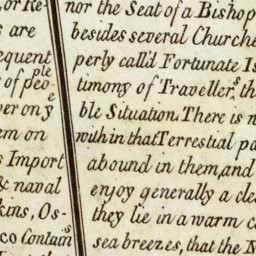 , or Re-
s are
equent
s of peo^ple
per on y^e
em on
s Import
& naval
kins, Os-
co Contain^s
nor the Seat of a Bishop
besides several Churche
perly call'd Fortunate Is
timony of Traveller^s, th
ble Situation. There is n
within that Terrestial pa
abound in them, and
enjoy generally a cle
they lie in a warm c
sea breezes, that the N